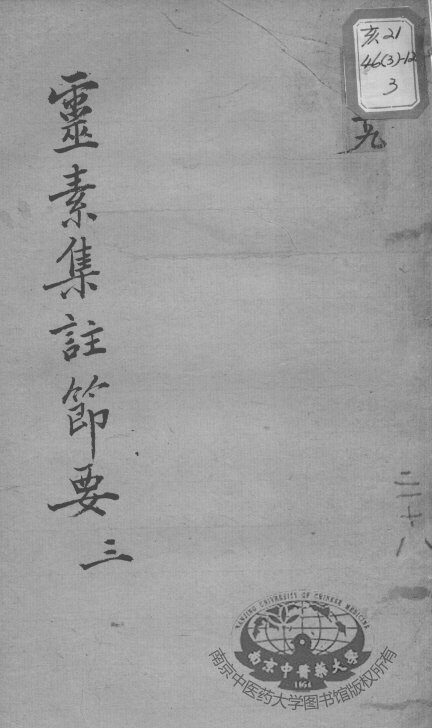 亥21
46(3)-12
3
靈素集註節要 三
二十八
NANJING UNIVERSITY OF CHINESE MEDICINE
南京中醫藥大學
1954
南京中医药大学图书馆版权所有